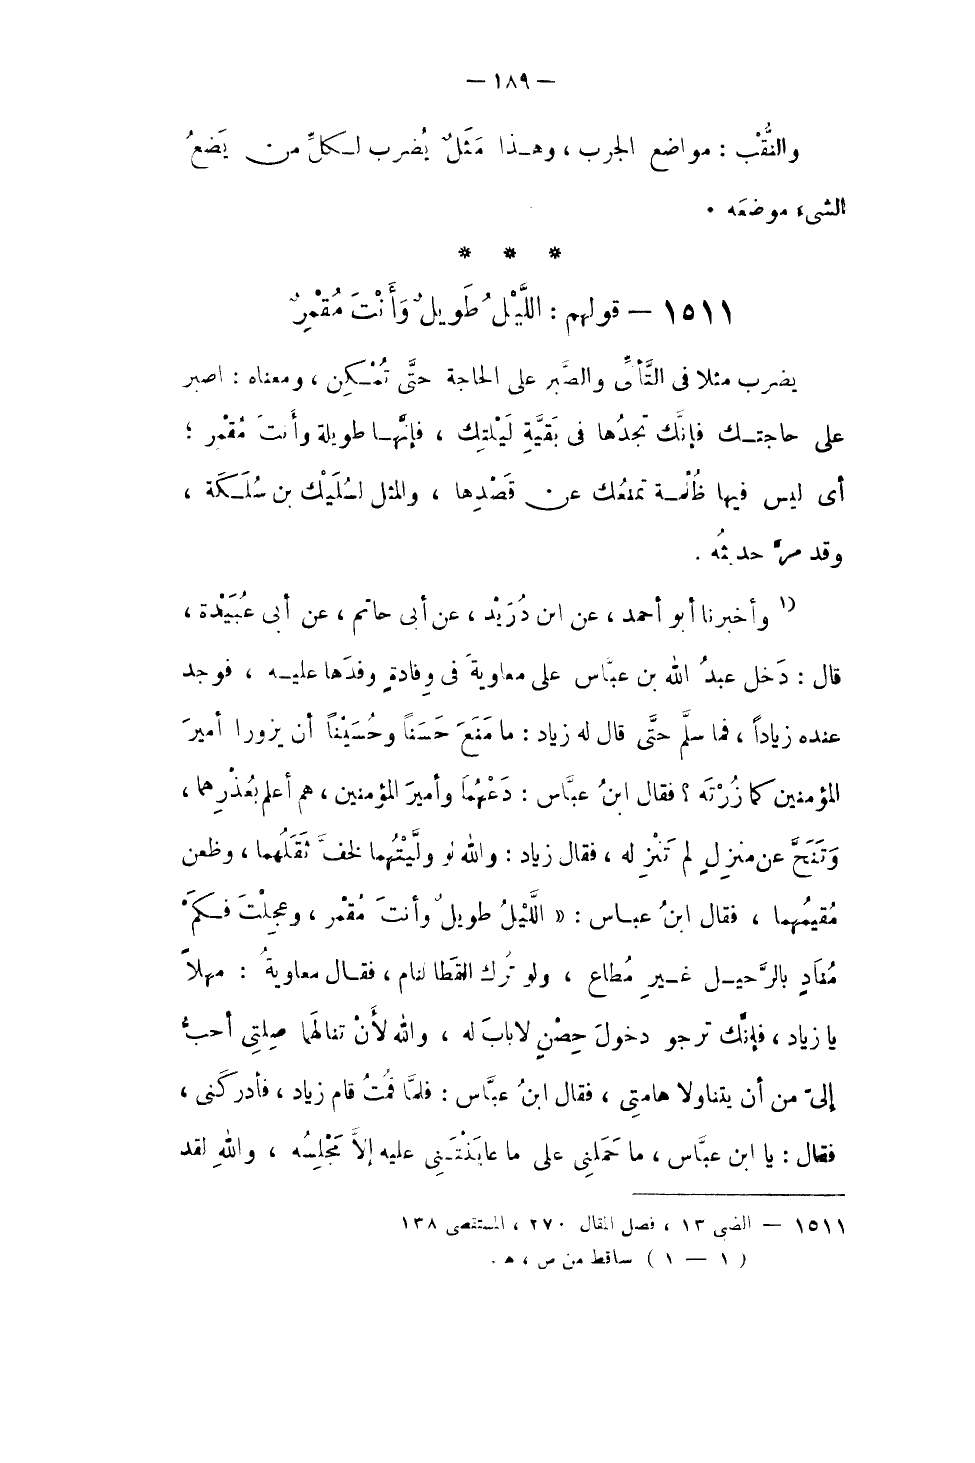 — ١٨٩ —
والنُّقْب : مواضع الجرب ، وهـذا مَثَلٌ يُضرب لـكلِّ من يَضعُ
الشىء موضعَه .
* * *
١٥١١ — قولهم : اللَّيْلُ طَويلٌ وَأَنْتَ مُقْمِرٌ
يضرب مثلا فى التَّأنِّى والصَّبر على الحاجة حتَّى تُمْـكِن ، ومعناه : اصبر
على حاجتـك فإنَّك تجدُها فى بَقيَّةِ لَيْلتِك ، فإنَّهـا طويلة وأنتَ مُقْمر ؛
أى ليس فيها ظُلْمـة تمنعُك عن قَصْدِها ، والمثل لسُلَيْك بن سُلَـكَة ،
وقد مرَّ حديثُه .
(١ وأخبرنا أبو أحمد ، عن ابن دُرَيْد ، عن أبى حاتم ، عن أبى عُبَيْدة ،
قال : دَخل عبدُ الله بن عبَّاس على معاويةَ فى وِفادةٍ وفدَها عليـه ، فوجد
عنده زياداً ، فما سلَّم حتَّى قال له زياد : ما مَنَعَ حَسَناً وحُسَيْناً أن يزورا أميرَ
المؤمنين كما زُرْتَه ؟ فقال ابنُ عبَّاس : دَعْهُمَا وأميرَ المؤمنين ، هم أعلم بعُذْرِهما ،
وَتَنَحَّ عن منزِلٍ لم تَنْزِ له ، فقال زياد : والله لو ولَّيْتُهما لخفَّ ثَقَلُهما ، وظعن
مُقيمُهما ، فقال ابنُ عبـاس : « اللَّيْلُ طويلٌ وأنتَ مُقْمر ، وعجِلْتَ فـكَمْ
مُنَادٍ بالرَّحيـل غـيرِ مُطاع ، ولو تُرك القَطا لنام ، فقـال معاويةُ : مهلاً
يا زياد ، فإنَّك ترجو دخولَ حِصْنٍ لابابَ له ، والله لأَنْ تنالَهَا صِلتِى أحبُّ
إلىّ من أن يتناولا هامتِى ، فقال ابنُ عبَّاس : فلمَّا قمْتُ قام زياد ، فأدركَنى ،
فقال : يا ابن عبَّاس ، ما حَمَلنِى على ما عابَنْتَـنِى عليه إلاَّ مَجْلِسُه ، واللهِ لقد
١٥١١ — الضبى ١٣ ، فصل المقال ٢٧٠ ، المستقصى ١٣٨
( ١ — ١ ) ساقط من ص ، هـ .